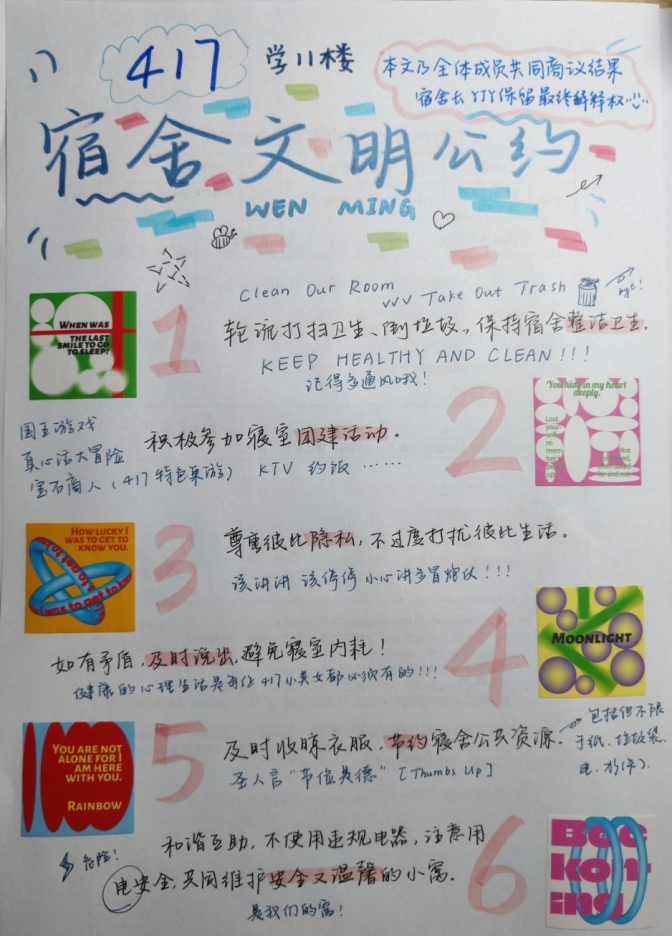 417 学11楼
本文乃全体成员共同商议结果
宿舍长YJY保留最终解释权
宿舍文明公约
WEN MING
Clean Our Room
Take Out Trash
WHEN WAS
THE LAST
SMILE TO GO
TO SLEEP?
1
轮流打扫卫生、倒垃圾,保持宿舍整洁卫生。
KEEP HEALTHY AND CLEAN!!!
记得多通风哦!
2
You hide in my heart
deeply.
国王游戏
真心话大冒险
宝石商人(417特色桌游) KTV 约饭……
积极参加寝室团建活动。
HOW LUCKY I
WAS TO GET TO
KNOW YOU.
3
尊重彼此隐私,不过度打扰彼此生活。
该讲讲 该停停 小心讲多冒烟伙!!!
4
MOONLIGHT
如有矛盾,及时说出,避免寝室内耗!
健康的心理生活是每位417小美女都必须有的!!!
YOU ARE NOT
ALONE FOR I
AM HERE
WITH YOU.
RAINBOW
5
及时收晾衣服,节约寝舍公共资源。
包括但不限
于纸、垃圾袋、
电、水(卡)。
圣人言“节俭美德”[Thumbs Up]
6
Bec
kon-
ing
和谐互助,不使用违规电器,注意用
电安全,共同维护安全又温馨的小窝。
危险!
是我们的窝!